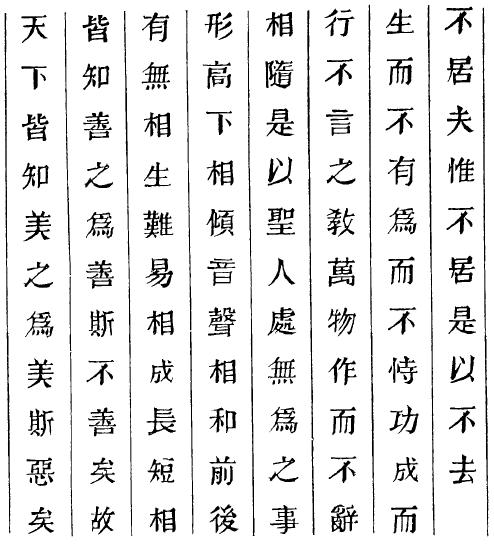 天下皆知美之爲美斯惡矣
皆知善之爲善斯不善矣故
有無相生難易相成長短相
形高下相傾音聲相和前後
相隨是以聖人處無爲之事
行不言之敎萬物作而不辭
生而不有爲而不恃功成而
不居夫惟不居是以不去